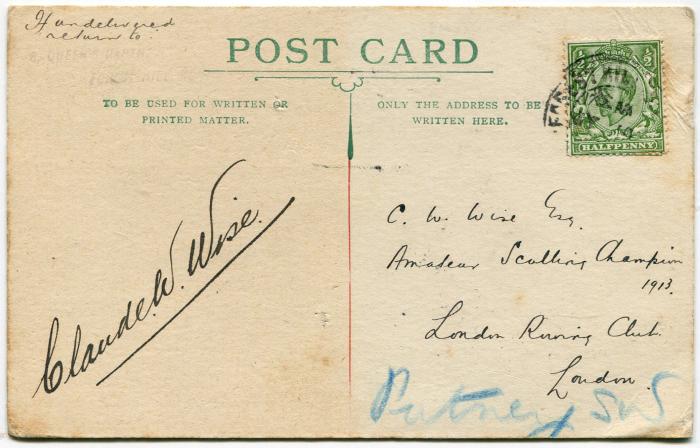 If undelivered
return to.
POST CARD
TO BE USED FOR WRITTEN OR
PRINTED MATTER.
ONLY THE ADDRESS TO BE
WRITTEN HERE.
½ ½
HALFPENNY
Claude W. Wise.
C. W. Wise Esq
Amateur Sculling Champion
1913.
London Rowing Club.
London.
Putney SW